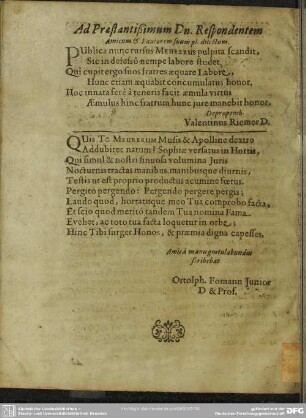 Ad Præstantissimum Dn. Respondentem
Amicum & Fautorem suum pl. dilectum.
PUblica nunc rursus MEURERUS pulpita scandit,
Sic indefesso nempe labore studet,
Qui cupit ergo suos fratres æquare Labore,
Hunc etiam æquabit concumulatus honor,
Hoc innata ferè à teneris facit æmula virtus
Æmulus hinc fratrum hunc jure manebit honor.
Deproperab.
Valentinus Riemer D.
QUis Te MEURERUM Musis & Apolline dextro
Addubitet natum? Sophiæ versatus in Hortis,
Qui simul & nostri sinuosa volumina Juris
Nocturnis tractas manibus, manibusque diurnis,
Testis ut est proprio productus acumine fœtus.
Pergito pergendo: Pergendo pergere pergis;
Laudo quod, hortatuque meo Tua comprobo facta,
Et scio quod meritò tandem Tua nomina Fama
Evehet, ac toto tua facta loquetur in orbe;
Hinc Tibi surget Honos, & præmia digna capesses.
Amicâ manu gratulabundus
scribebat
Ortolph. Fomann Junior
D & Prof.